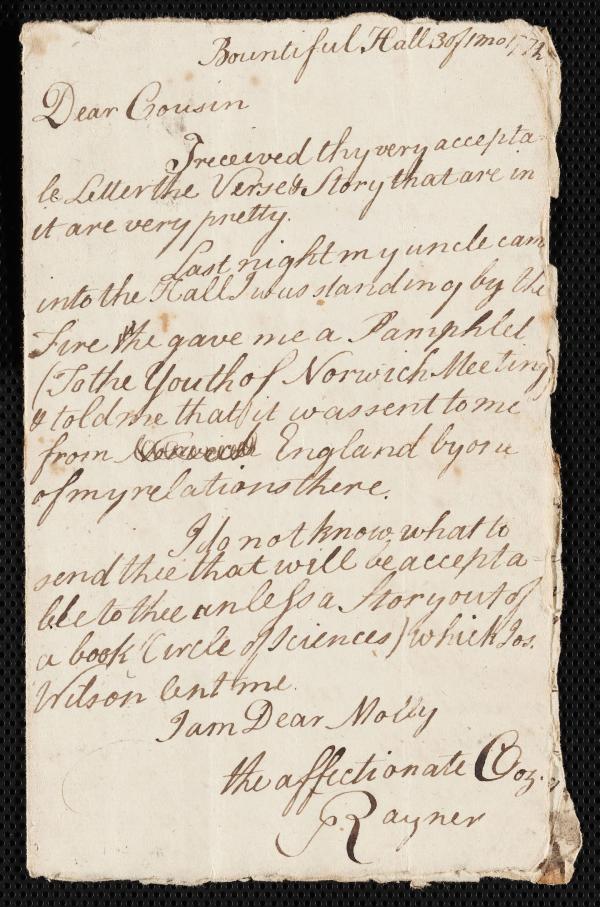 Bountiful Hall 3 of 1 mo 1772
Dear Cousin
I received thy very accepta-
le Letter the Verse & Story that are in
it are very pretty.
Last night my uncle cam
into the Hall I was standing by the
Fire he gave me a Pamphlet
(To the Youth of Norwich Meeting)
& told me that it was sent to me
from England by one
of my relations there.
I do not know what to
send thee that will be accepta-
ble to thee unless a Story out of
a book (Circle of Sciences) which Jos.
Wilson lent me.
I am Dear Molly
the affectionate Coz.
Rayner